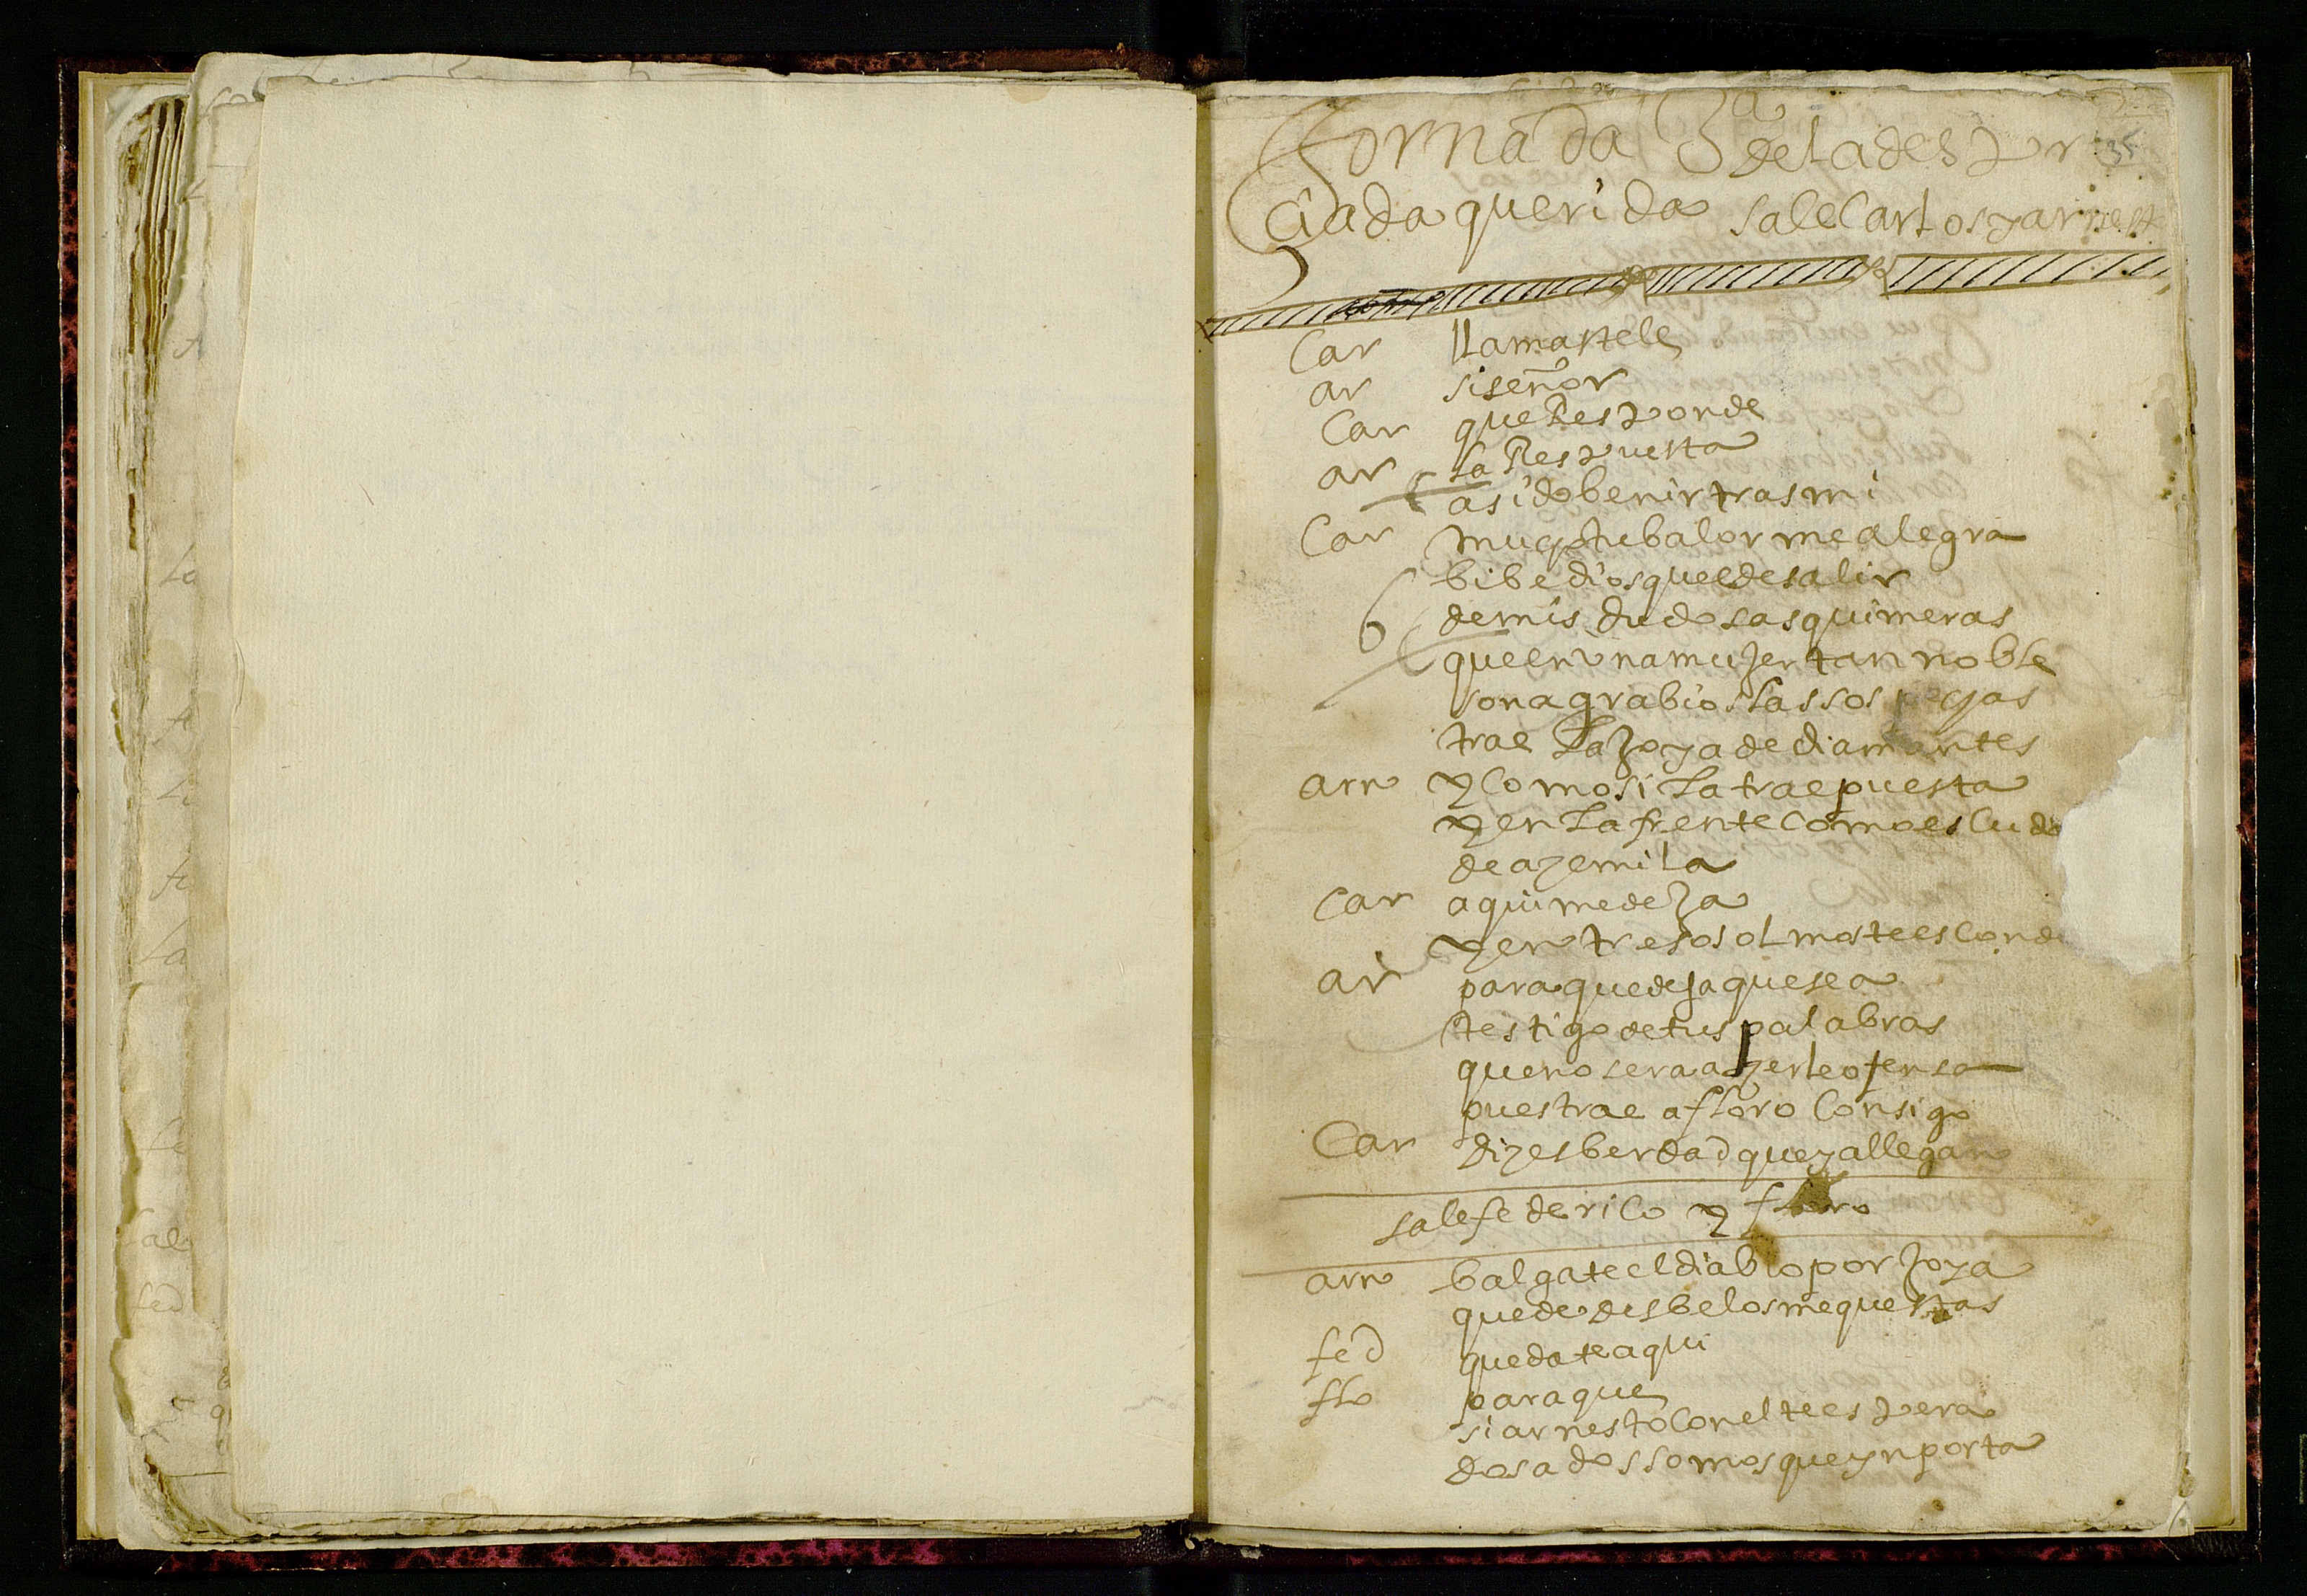 Jornada 3a de la despr 35
ciada querida sale Carlos y arnest
Car llamastele
ar si señor
Car que Responde
ar la Respuesta
a sido benir tras mi
Car mucho tu balor me alegra
bibe dios que e de salir
de mis dudosas quimeras
que en una mujer tan noble
son agrabios las sospechas
trae la joya de diamantes
arn y como si la trae puesta
y en la frente como escudo
de azemila
Car aqui me deja
y entre sos olmos te esconde
ar para que deja que sea
testigo de tus palabras
que no sera azerle ofensa
pues trae a floro consigo
Car dizes berdad que ya llegan
sale federico y floro
arn balgate el diablo por joya
que de desbelos me questas
fed quedate aqui
flo para que
si arnesto con el te espera
dos a dos somos que ynporta